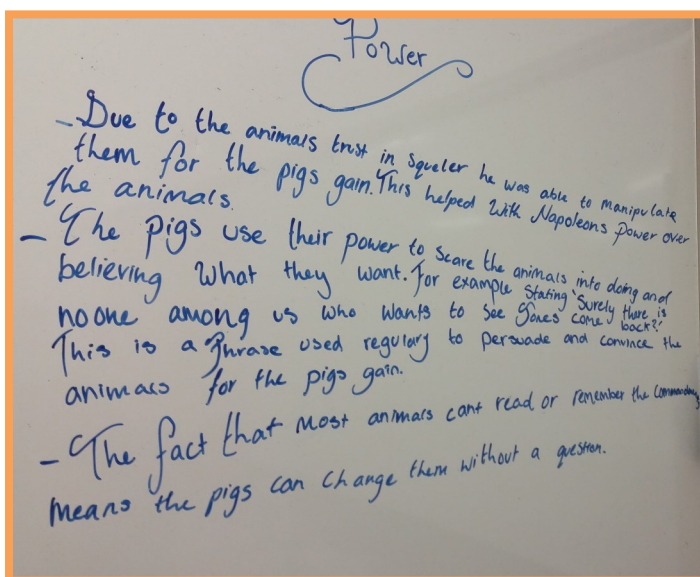 Power
- Due to the animals trust in Squeler he was able to manipulate
them for the pigs gain. This helped with Napoleons power over
the animals.
- The pigs use their power to scare the animals into doing and
believing what they want. For example stating 'Surely there is
no one among us who wants to see Jones come back?'
This is a phrase used regulary to persuade and convince the
animals for the pigs gain.
- The fact that most animals cant read or remember the commandments
means the pigs can change them without a question.